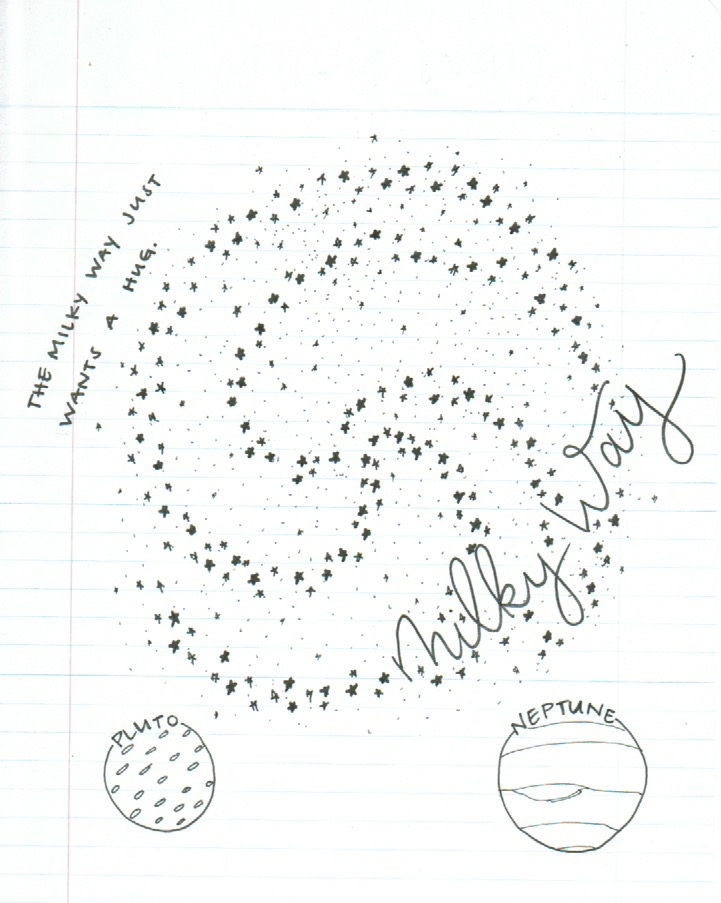 THE MILKY WAY JUST
WANTS A HUG.
Milky Way
PLUTO
NEPTUNE